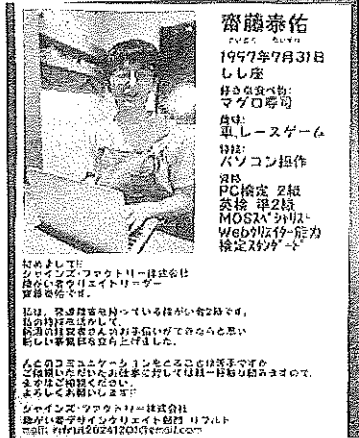 齋藤泰佑
さいとう たいすけ
1997年7月31日
しし座
好きな食べ物:
マグロ寿司
趣味:
車、レースゲーム
特技:
パソコン操作
資格
PC検定 2級
英検 準2級
MOSスペシャリスト
Webクリエイター能力
検定スタンダード
初めまして!!
ジャインズ・ファクトリー株式会社
障がい者クリエイトリーダー
齋藤泰佑です。
私は、発達障害を持っている障がい者2級です。
私の特技を活かして、
新しい事業部を立ち上げました。
人とのコミュニケーションをとることは苦手ですが
ご依頼いただいたお仕事に対しては精一杯取り組みますので、
まずはご相談ください。
よろしくお願いします!!
ジャインズ・ファクトリー株式会社
障がい者デザインクリエイト部門 リブルト